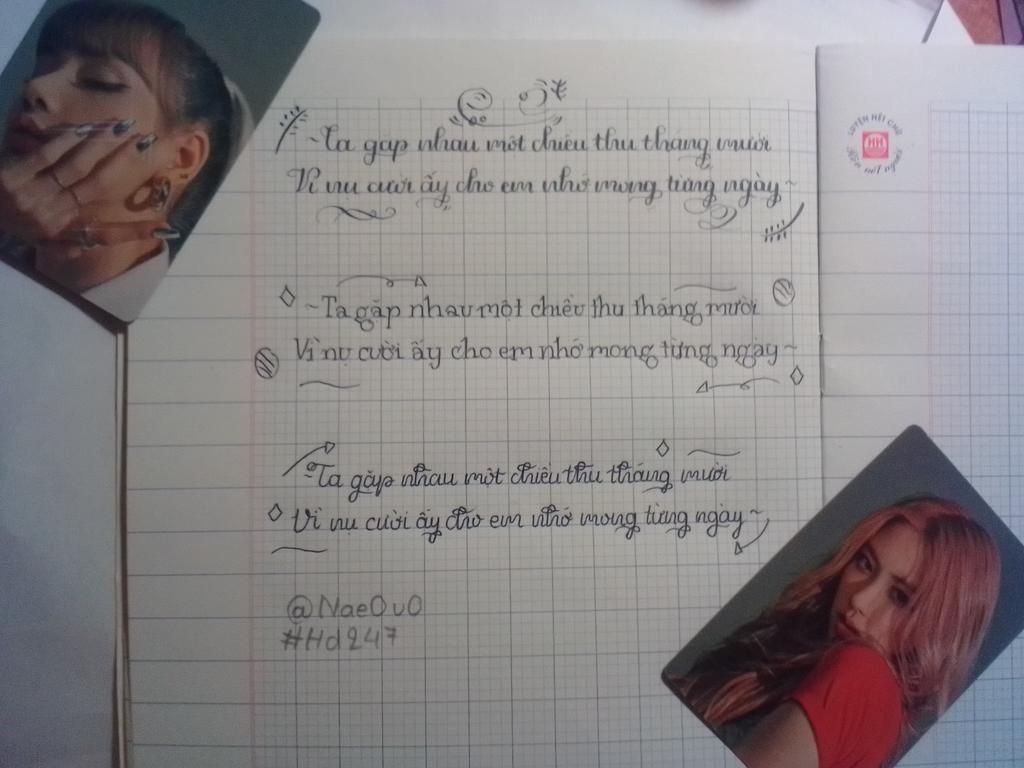 ~Ta gặp nhau một chiều thu tháng mười
Vì nụ cười ấy cho em nhớ mong từng ngày~
~Ta gặp nhau một chiều thu tháng mười
Vì nụ cười ấy cho em nhớ mong từng ngày~
~Ta gặp nhau một chiều thu tháng mười
Vì nụ cười ấy cho em nhớ mong từng ngày~
@Nae0u0
#Hd247
LUYỆN NÉT CHỮ
HH
Rèn nết người